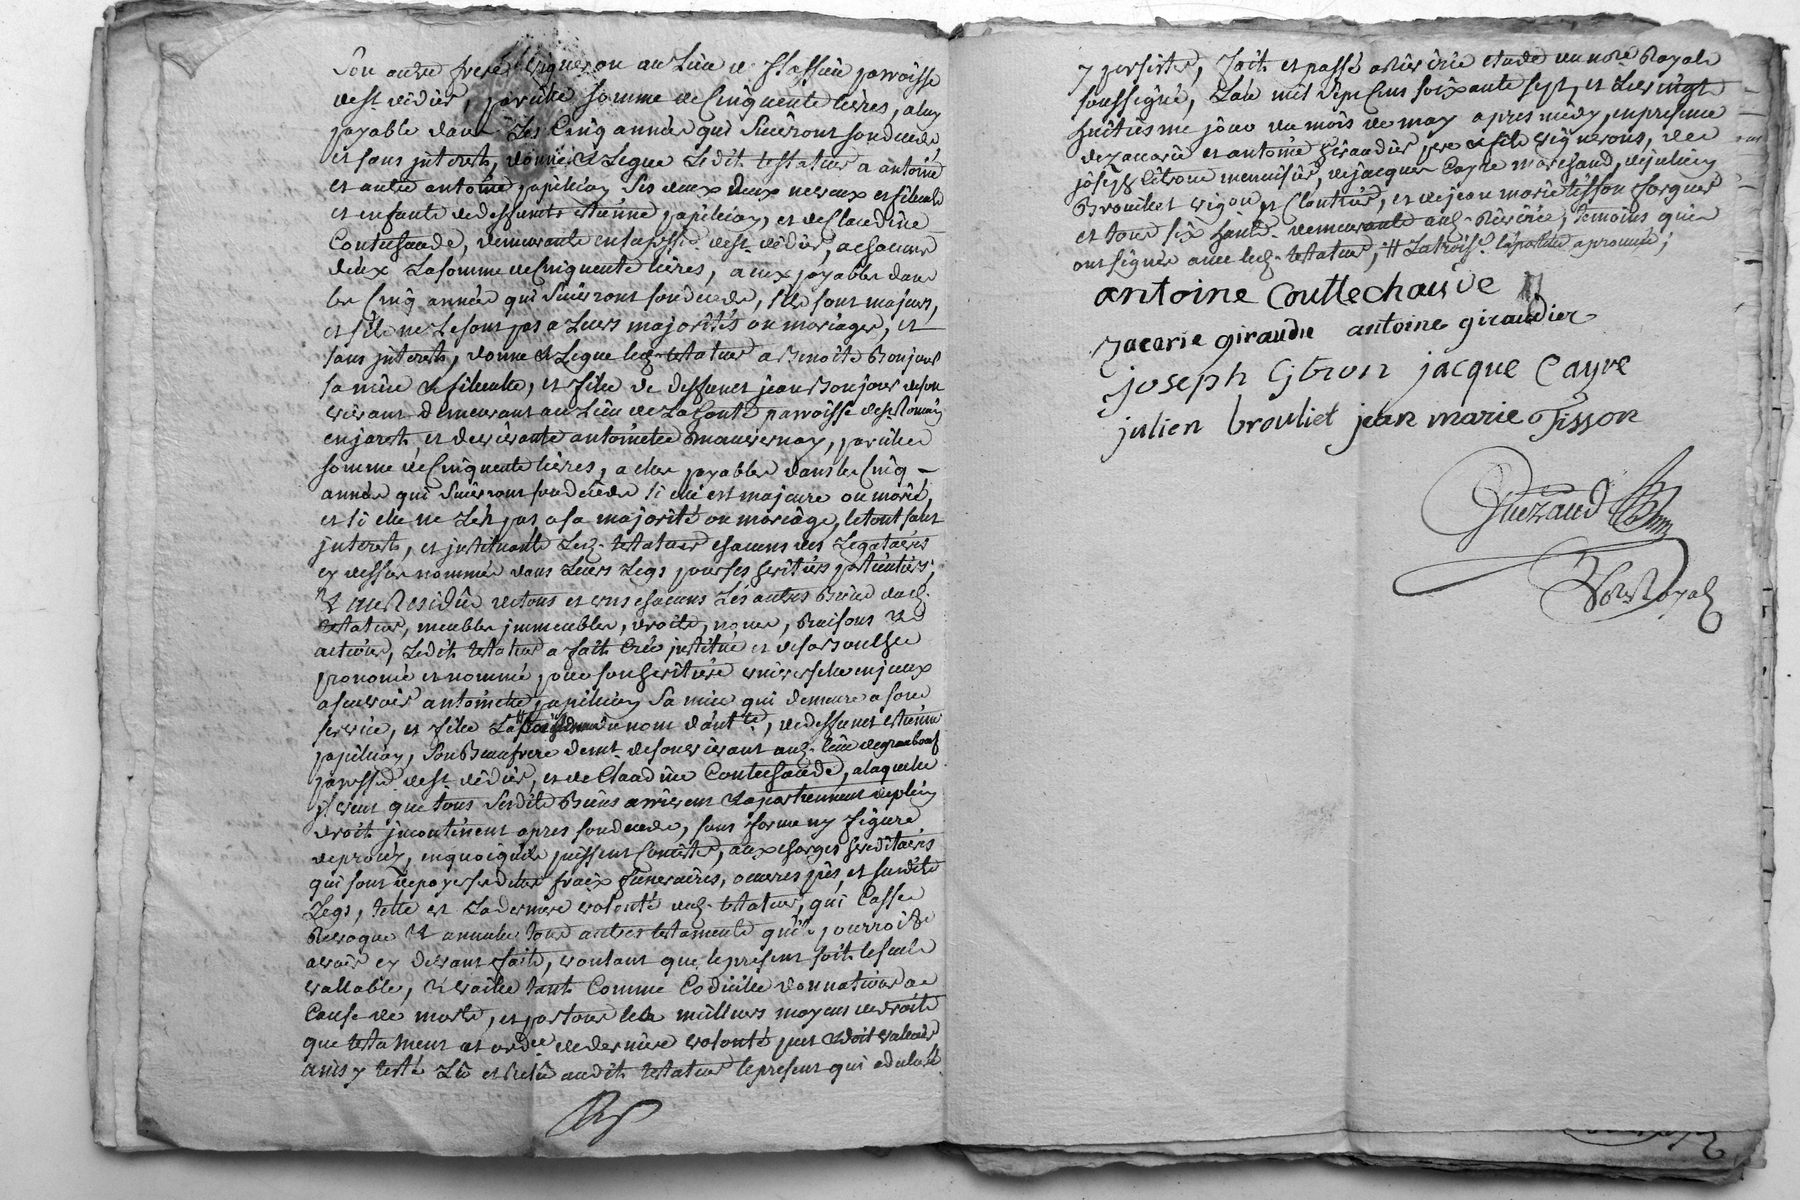 Son autre frere vigneron au Lieu de flassieu parroisse
de st didier, pareille somme de Cinquante livres, a luy
payable dans Les Cinq années qui Suivront son deceds,
et sans jnterets, donne et Legue Ledit testateur a antoine
et autre antoine papillioy Ses deux neveux et filleuls
et enfants de deffunts etienne papillioy, et de Claudine
Couttechaude, demeurants en la parssse de st didier, a chacuns
deux La somme de Cinquante livres, a eux payables dans
les Cinq années qui Suivront son deceds, s'ils sont majeurs,
et s'ils ne Le sont pas a Leurs majorités ou mariages, et
sans jnterets, donne et Legue led. testateur a Benoite Bonjour
sa niêce et filleulle, et fille de deffunct jean Bonjour de son
vivant demeurant au Lieu de La fonte parroisse de st Romain
en jarest et de vivante antoinette, pareille
somme de Cinquante livres, a elle payable dans les Cinq
années qui Suivront son deceds si elle est majeure ou marié,
et si elle ne L'est pas a sa majorité ou mariâge, le tout sans
jnterets, et jnstituants Led. testateur chacuns des Legataires
cy dessus nommés dans Leurs Legs pour ses heritiers particuliers,
Et au Residûe de tous et uns chacuns Les autres Biens dud.
testateur, meubles jmmeubles, droits, noms, Raisons et
actions, Ledit testateur a fait Créé jnstitué et de sa Bouche
pronomé et nommé, pour son heritiere universelle en jceux
a scavoir antoinette papillioy Sa niece qui demeure a son
service, et fille du nom d'ant.te, de deffunct etienne
papillioy, Son Beaufrere demt. de son vivant aud. lieu de
parsse de st didier, et de Claudine Couttechaude, a laquelle
jl veut que tous Sesdits Biens arrivent et apartiennent de plein
droit jncontinent apres son deceds, sans forme ny figure
de procès, en quoi qu'ils puissent Consister, aux charges hereditaires
qui sont de payer sesdettes fraix funeraires, oeuvres pies, et susdits
Legs, telle est La derniere volonté dud. testateur, qui Casse
Revoque et annulle tous autres testaments qu'il pourroit
avoir cy devant faits, voulant que le present soit le seul
vallable, et vaille tant Comme Codicille donnation a
Cause de mort, et par tous les meilleurs moyens de droits
que testament et ordce de derniere volonté peut et doit valoir
ainsy testé Lû et Relû audit testateur le present qui a declaré
y persister, fait et passé a Riverie etude du nore Royal
soussigné, L'an mil Sept Cens soixante sept, et Le vingt
huitiesme jour du mois de may apres midy, en presence
de zacarie et antoine giraudier pere et fils vignerons, de
joseph Citron menuisier, de jacques Cayre marchand, de julien
Brouiliet et Cloutier, et de jean marie tisson forgeur
et tous six habts demeurants aud. Riverie, temoins qui
ont signés avec led. testateur,
antoine Couttechaude
zacarie giraudie antoine giraudier
joseph Citron jacque Cayre
julien brouliet jean marie Tisson
Guezaud
Nore Royal